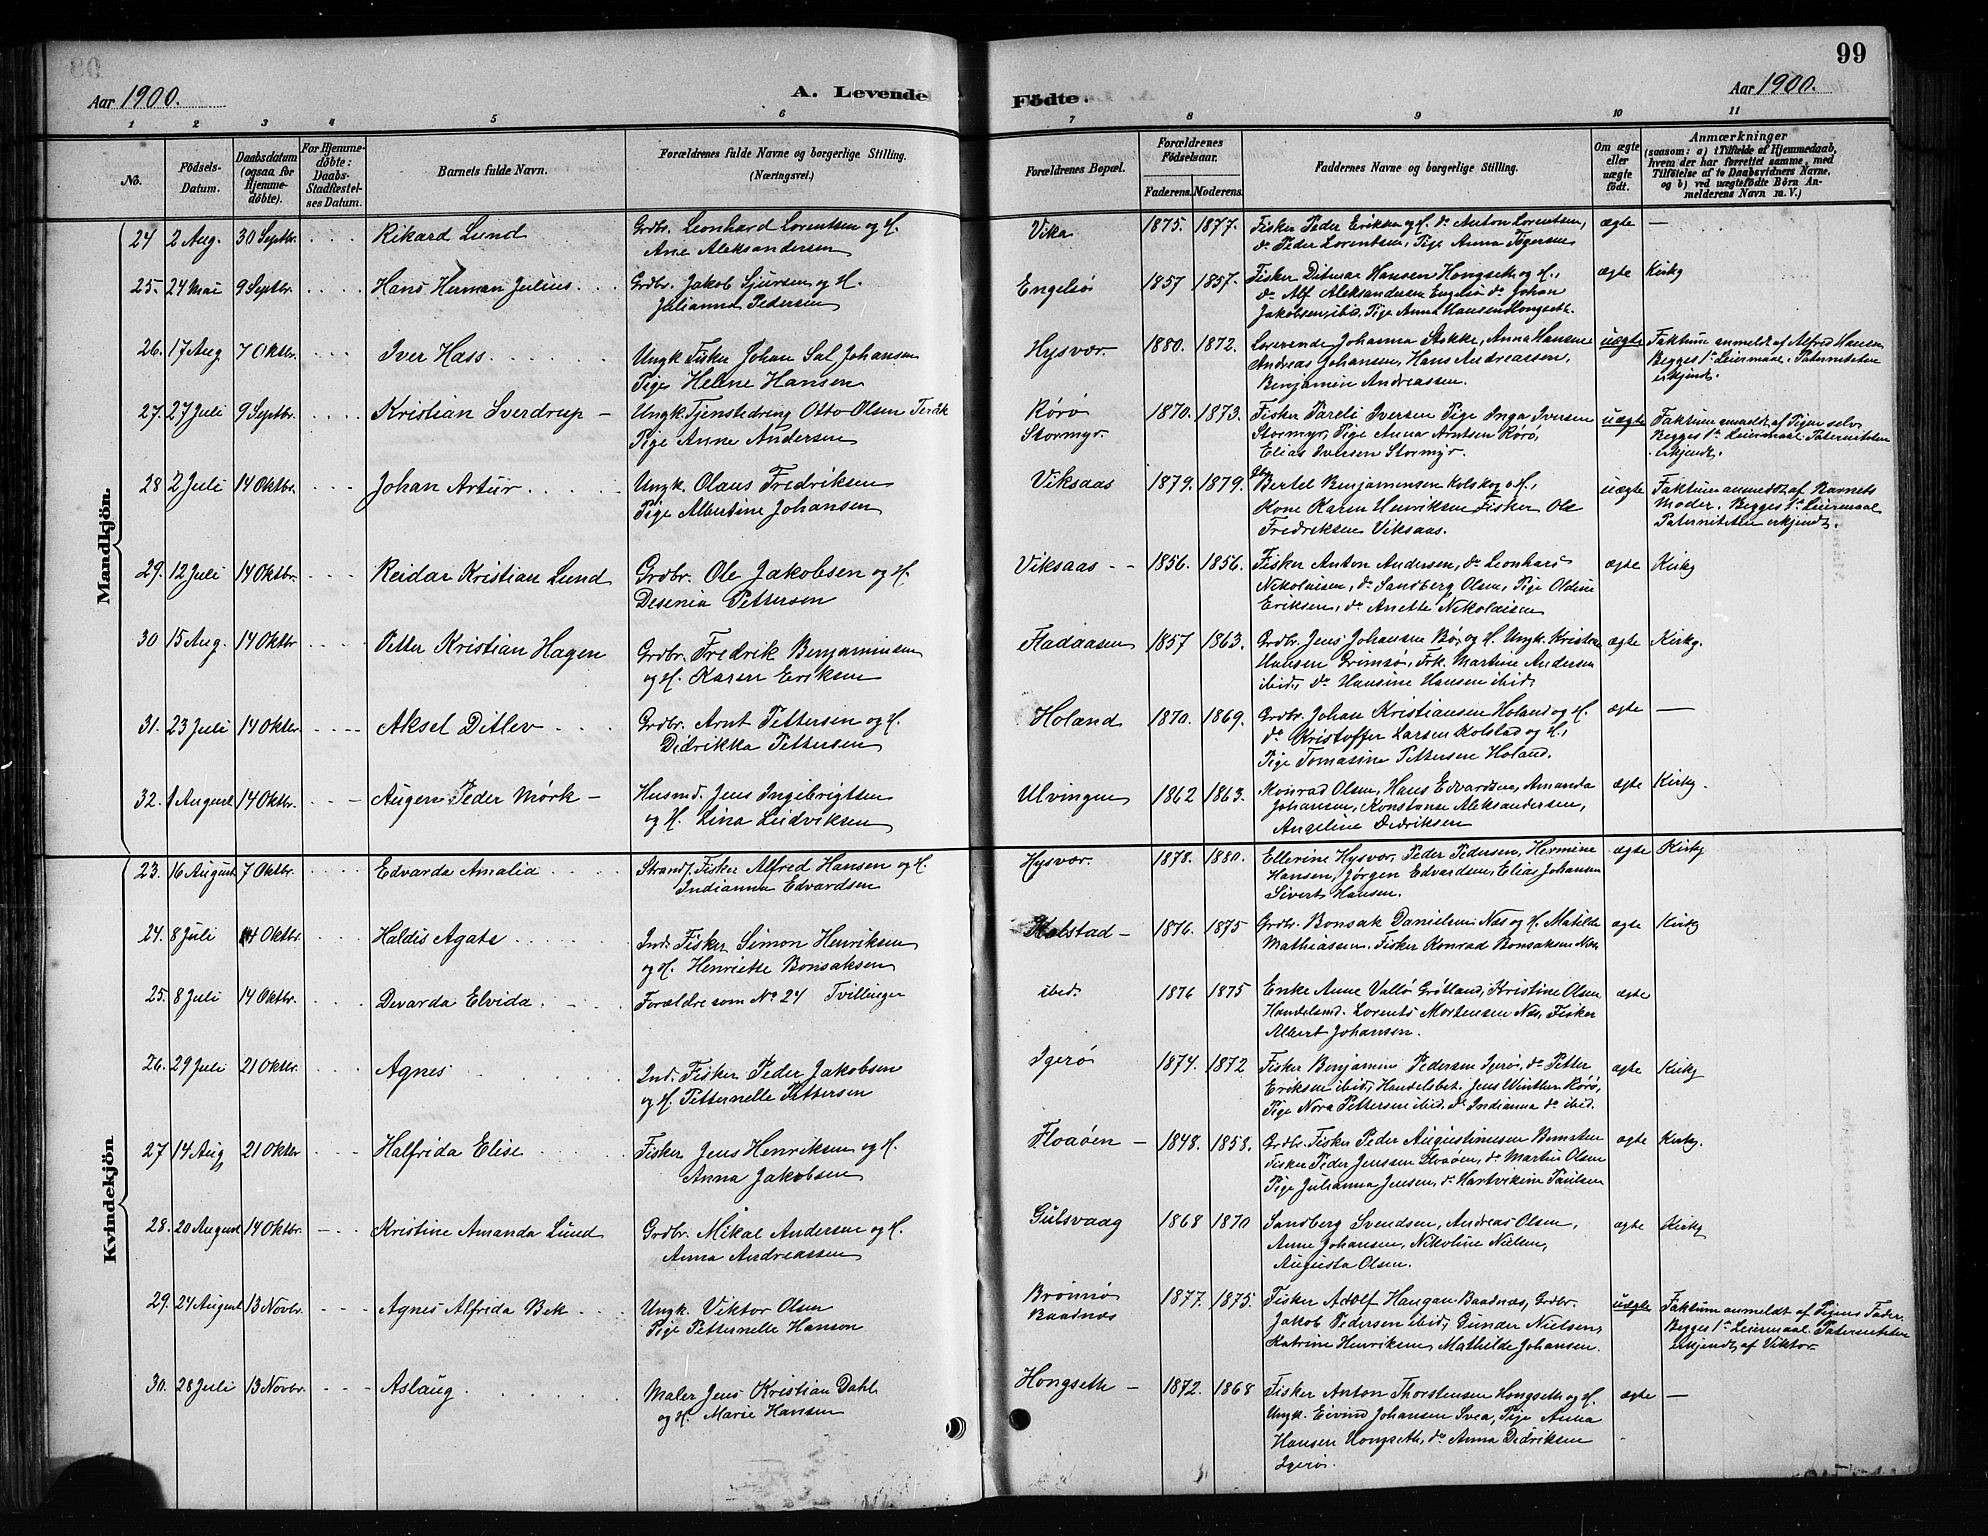 99
Aar 1900.
A. Levende Födte.
Aar 1900.
1 2 3 4 5 6 7 8 9 10 11
No.
Födsels-Datum.
Daabsdatum (ogsaa for Hjemmedöbte).
For Hjemmedöbte: Daabs-Stadfæstelses Datum.
Barnets fulde Navn.
Forældrenes fulde Navne og borgerlige Stilling.
(Næringsvei.)
Forældrenes Bopæl.
Forældrenes Födselsaar.
Faderens. Moderens.
Faddernes Navne og borgerlige Stilling.
Om ægte eller uægte födt.
Anmærkninger
(saasom: a) i Tilfælde af Hjemmedaab, hvem der har forrettet samme, med Tilföielse af to Daabsvidners Navne, og b) ved uægtefödte Börn Anmelderens Navn m. V.)
Mandkjön.
24 2 Aug. 30 Septbr. Rikard Lund Grdbr. Leonhard Lorentsen og H. Vika 1875. 1877. Fisker Peder Eriksen og H. do Anton Lorentsen, ægte —
Ane Aleksandersen do Peder Lorentsen, Pige Anna Tygersen
25. 24 Mai 9 Septbr. Hans Herman Julius Grdbr. Jakob Sjursen og H. Engelsö 1857 1857. Fisker Ditmar Hansen Hongseth og H., ægte Kirkg
Julianna Pedersen do Alf Aleksandersen Engelsö do Johan
Jakobsen, ibid, Pige Anna Hansen Hongseth.
26. 17 Aug 7 Oktbr. Iver Hass Ungk Fisker Johan Sal. Johansen Hysvær 1880. 1872. Lærerinde Johanna Stokke, Anna Hansen uægte Faktum anmeldt af Alfred Hansen
Pige Helene Hansen Andreas Johansen, Hans Andreassen, Begges 1ste Leiermaal. Paterniteten
Benjamin Andreassen. erkjendt.
27. 27 Juli 9 Septbr. Kristian Sverdrup — Ungk. Tjenestedreng Otto Olsen Rörö 1870. 1873. Fisker Pareli Iversen Pige Inga Iversen uægte Faktum anmeldt af Pigen selv.
Pige Anne Andersen Stormyr. Stormyr, Pige Anna Arntsen Rörö, Begges 1ste Leiermaal. Paterniteten
Elias Iversen Stormyr. erkjendt.
28 2 Juli 14 Oktbr. Johan Artur Ungk. Olaus Fredriksen Viksaas 1879. 1879. Bertel Benjaminsen Kolskog o. H., uægte Faktum anmeldt af Barnets
Pige Albertine Johansen Kone Karen Henriksen Fisker Ole Moder. Begges 1ste Leiermaal
Fredriksen Viksaas. Paterniteten erkjendt.
29. 12 Juli 14 Oktbr. Reidar Kristian Lund Grdbr. Ole Jakobsen og H. Viksaas 1856. 1856. Fisker Anton Andersen, do Leonhard ægte Kirkg
Desenia Pettersen Nikolaisen, do Sandberg Olsen, Pige Oldine
Eriksen, do Anette Nikolaisen
30 15 Aug. 14 Oktbr. Petter Kristian Hagen Grdbr. Fredrik Benjaminsen Fladaasen 1857 1863. Grdbr. Jens Johansen Bö, og H. Ungk. Kristen ægte Kirkg.
og H. Karen Eriksen Hansen Grimsö, Frk. Martine Andersen
ibid, do Hansine Hansen ibid,
31. 23 Juli 14 Oktbr. Aksel Ditlev Grdbr. Arnt Pettersen og H. Holand 1870. 1869. Grdbr. Johan Kristiansen Holand og H. ægte —
Didrikka Pettersen do Kristoffer Larsen Kolstad og H.,
Pige Tomasine Pettersen Holand.
32. 1 August 14 Oktbr. Augen Peder Mörk — Husmd. Jens Ingebrigtsen Ulvingen 1862 1863. Konrad Olsen, Hans Edvardsen, Amanda ægte Kirkg.
og H. Lina Ludviksen Johansen, Konstanse Aleksandersen,
Angeline Didriksen
Kvindekjön.
23. 16 August 7 Oktbr. Edvarda Amalia Strands. Fisker Alfred Hansen og H. Hysvær. 1878. 1880. Ellerine Hysvær, Peder Pedersen, Hermine ægte Kirkg
Indianna Edvardsen Hansen, Jörgen Edvardsen, Elias Johansen
Sivert Hansen.
24. 8 Juli 14 Oktbr. Haldis Agate Ind. Fisker Simon Henriksen Kolstad — 1876. 1875 Grdbr. Bonsak Danielsen Næs og H. Matilde ægte Kirkg
og H. Henriette Bonsaksen Mathiassen. Fisker Konrad Bonsaksen Næs
25. 8 Juli 14 Oktbr. Devarda Elvida Forældre som No 24 Tvillinger ibid. 1876 1875 Enke Anne Vallö Grötland, Kristine Olsen ægte
Handelsmd. Lorents Mortensen Næs, Fisker
Albert Johansen.
26. 29 Juli 21 Oktbr. Agnes Ind. Fisker Peder Jakobsen Igerö 1874. 1872 Fisker Benjamin Pedersen Igerö, do Petter ægte Kirkg
og H. Petternelle Pettersen Eriksen ibid, Handelsbet. Jens Winther Rörö,
Pige Nora Pettersen ibid. do Indianna do ibid.
27 14 Aug 21 Oktbr Halfrida Elise Fisker Jens Henriksen og H. Floaöen — 1848. 1858. Grdbr. Fisker Peder Augustinusen ægte Kirkg.
Anna Jakobsen Fisker Peder Jenssen Floaöen, do Martin Olsen
Pige Julianna Jensen, do Hartvikine Paulsen
28. 20 August 14 Oktbr. Kristine Amanda Lund Grdbr. Mikal Andersen og H. Gulsvaag 1868 1870 Sandberg Svendsen, Andreas Olsen, ægte Kirkg
Anna Andreassen Anne Johansen, Nikoline Nielsen,
Augusta Olsen.
29. 24 August 13 Novbr. Agnes Alfrida Bek Ungk. Viktor Olsen Brönnö 1877. 1875. Fisker Adolf Haugan Baadnæs, Grdbr. uægte Faktum anmeldt af Pigens Fader.
Pige Petternelle Hanson Baadnæs Jakob Pedersen ibid, Gunder Nielsen, Begges 1ste Leiermaal. Paterniteten
Katrine Henriksen, Mathilde Johansen. erkjendt af Viktor.
30. 28 Juli 13 Novbr. Aslaug Maler Jens Kristian Dahl Hongseth — 1872. 1868 Fisker Anton Thorstensen Hongseth og H. ægte —
og H. Marie Hansen Ungk. Eivind Johansen Svea, Pige Anna
Hansen Hongseth, do Anna Didriksen
Igerö.